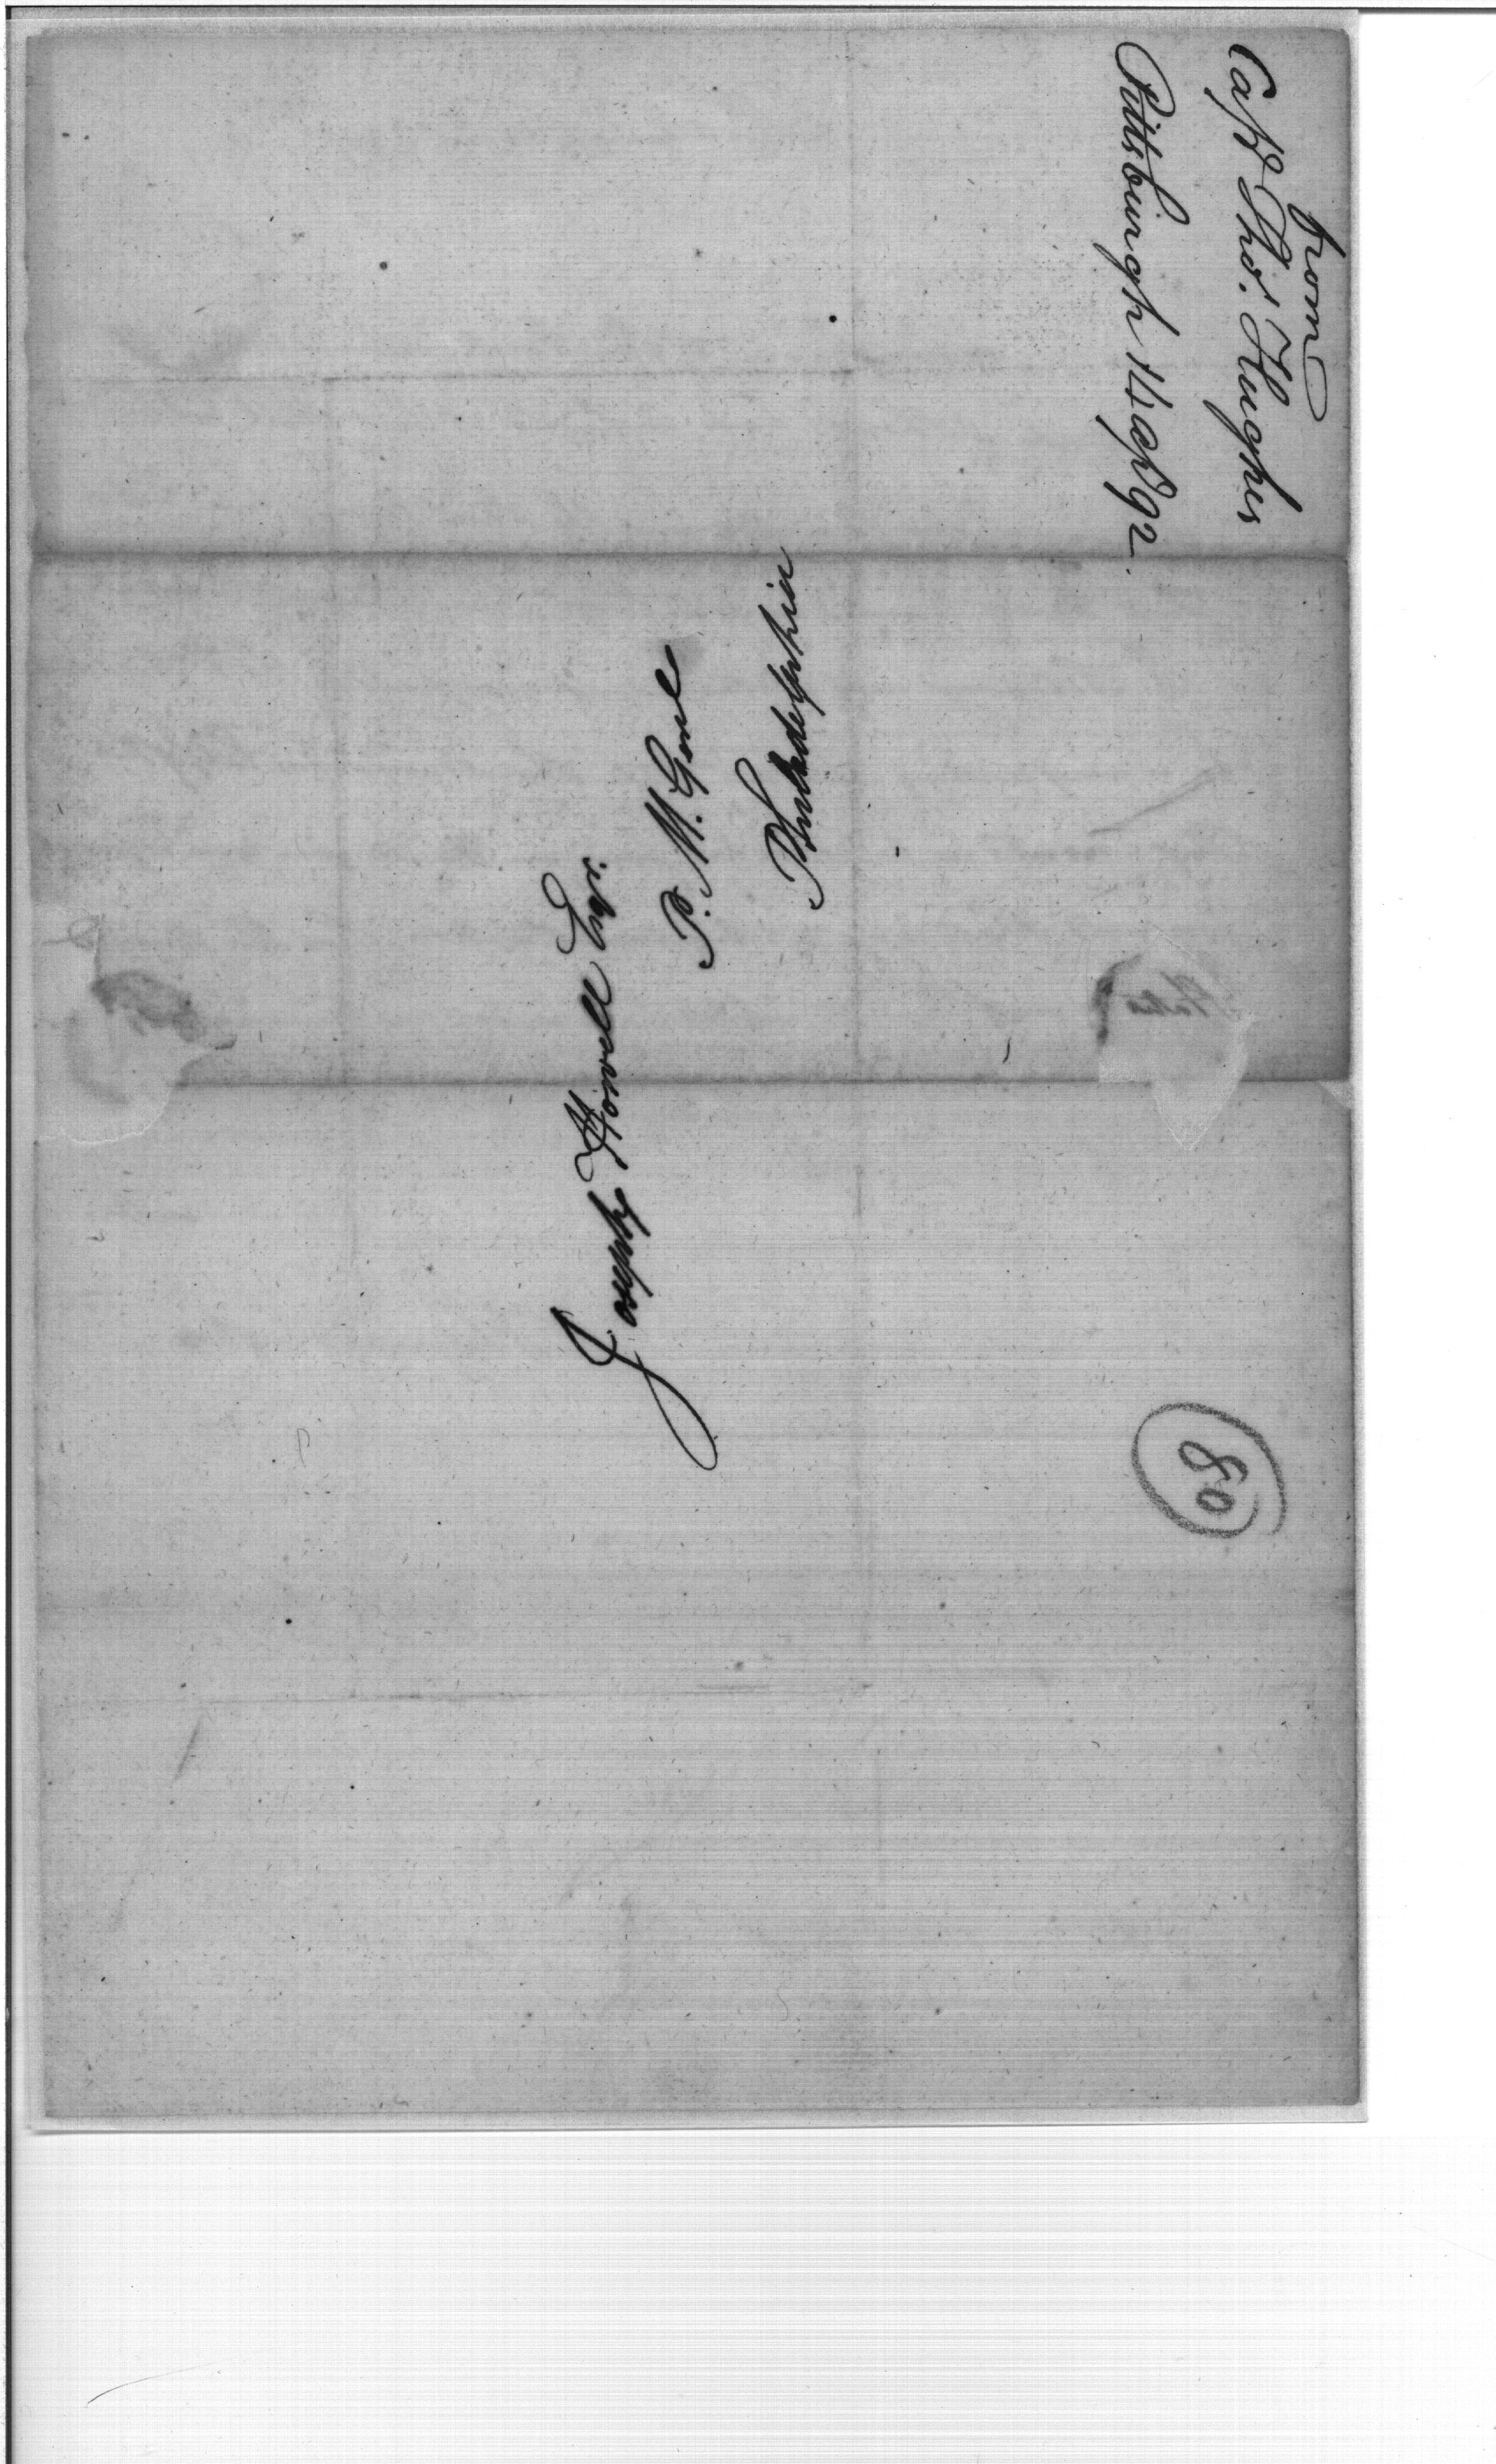 from
Capt Thos. Hughes
Pittsburgh 14 apl 92
Joseph Howell Esqr.
P. M. Genl
Philadelphia
80